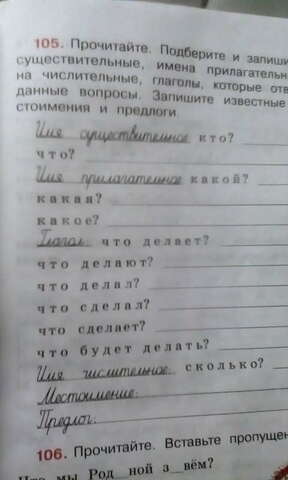 105. Прочитайте. Подберите и запиши
существительные, имена прилагательн
на числительные, глаголы, которые отв
данные вопросы. Запишите известные
стоимения и предлоги.
Имя существительное кто?
что?
Имя прилагательное какой?
какая?
какое?
Глагол: что делает?
что делают?
что делал?
что сделал?
что сделает?
что будет делать?
Имя числительное: сколько?
Местоимение:
Предлог:
106. Прочитайте. Вставьте пропущен
Что мы Род_ной з_вём?